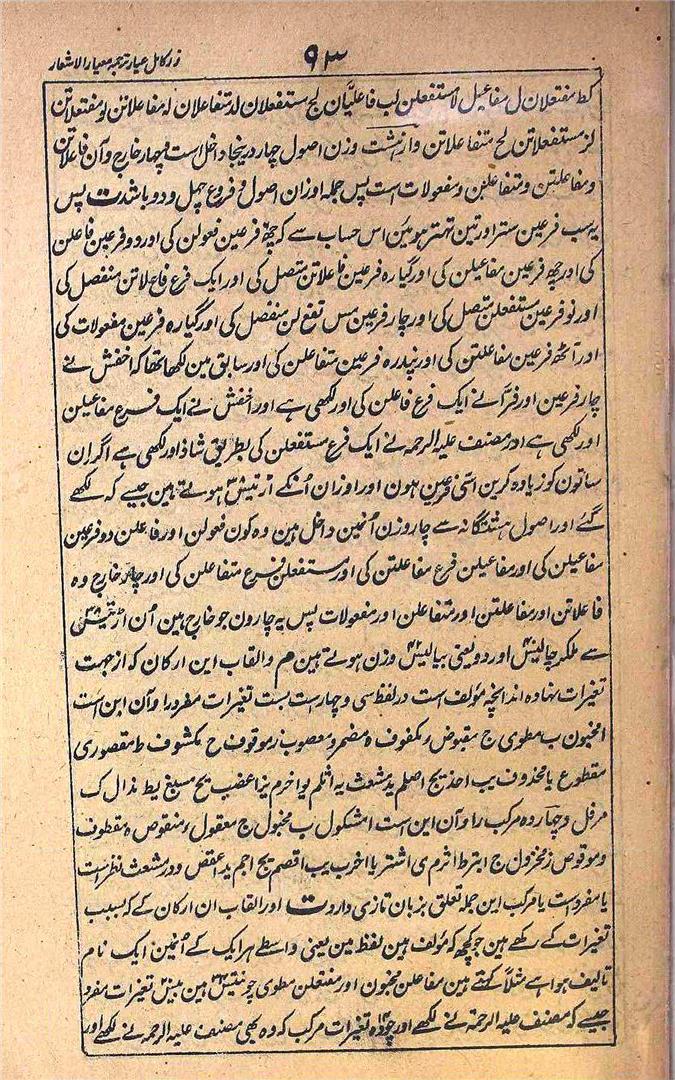 زر کامل عیار ترجمہ معیار الاشعار
۹۳
کط مفتعلان ل مفاعیل لا مستفعلن لب فاعلیّان لج مستفعلان لد متفاعلان لہ مفاعلاتن لو مفتعلاتن
لز مستفعلاتن لح متفاعلاتن واز ہشت وزن اصول چہار درینجا داخل است و چہار خارج و آن فاعلاتن
و مفاعلتن و متفاعلن و مفعولات است پس جملہ اوزان اصول و فروع چہل و دو باشد ت پس
یہ سب فرعین ستر اور تین تہتر ہوئین اس حساب سے کہ چھ فرعین فعولن کی اور دو فرعین فاعلن
کی اور چھ فرعین مفاعیلن کی اور گیارہ فرعین فاعلاتن متصل کی اور ایک فرع فاع لاتن منفصل کی
اور نو فرعین مستفعلن متصل کی اور چار فرعین مس تفع لن منفصل کی اور گیارہ فرعین مفعولات کی
اور آٹھ فرعین مفاعلتن کی اور پندرہ فرعین متفاعلن کی اور سابق مین لکھا تھا کہ اخفش نے
چار فرعین اور فرّا نے ایک فرع فاعلن کی اور لکھی ہے اور اخفش نے ایک فرع مفاعیلن
اور لکھی ہے اور مصنف علیہ الرحمہ نے ایک فرع مستفعلن کی بطریق شاذ اور لکھی ہے اگر ان
ساتون کو زیادہ کرین اسّی فرعین ہون اور اوزان اُنکے اڑتیس ہوتے ہین جیسے کہ لکھے
گئے اور اصول ہشتگانہ سے چار وزن اُنمین داخل ہین وہ کون فعولن اور فاعلن دو فرعین
مفاعیلن کی اور مفاعیلن فرع مفاعلتن کی اور مستفعلن فرع متفاعلن کی اور چار خارج وہ
فاعلاتن اور مفاعلتن اور متفاعلن اور مفعولات پس یہ چارون جو خارج ہین اُن اڑتیس
سے ملکر چالیس اور دو یعنی بیالیس وزن ہوتے ہین م و القاب این ارکان کہ از جہت
تغیرات نہادہ اند انچہ مؤلف است در لفظ سی و چہار است بست تغیرات مفرد را و آن این است
ا مخبون ب مطوی ج مقبوض د مکفوف ہ مضمر و معصوب ز موقوف ح مکشوف ط مقصور ی
مقطوع یا محذوف یب احذ یج اصلم ید مشعث یہ اثلم یو اخرم یز اعضب یح مسبغ یط مذال ک
مرفل و چہاردہ مرکب را و آن این است ا مشکول ب مخبول ج معقول د منقوص ہ مقطوف
و موقوص ز مخزول ح ابتر ط اثرم ی اشتر یا اخرب یب اقصم یج اجم ید اعقص و در مشعث نظر است
یا مفرد است یا مرکب این جملہ تعلق بزبان تازی دارد ت اور القاب ان ارکان کے کہ بسبب
تغیرات کے رکھے ہین جو کچھ کہ مؤلف ہین لفظ مین یعنی واسطے ہر ایک کے اُنمین ایک نام
تالیف ہوا ہے مثلاً کہتے ہین مفاعلن مخبون اور مفتعلن مطوی چونتیس ہین بیس تغیرات مفرد
جیسے کہ مصنف علیہ الرحمۃ نے لکھے اور چودہ تغیرات مرکب کہ وہ بھی مصنف علیہ الرحمہ نے لکھے اور